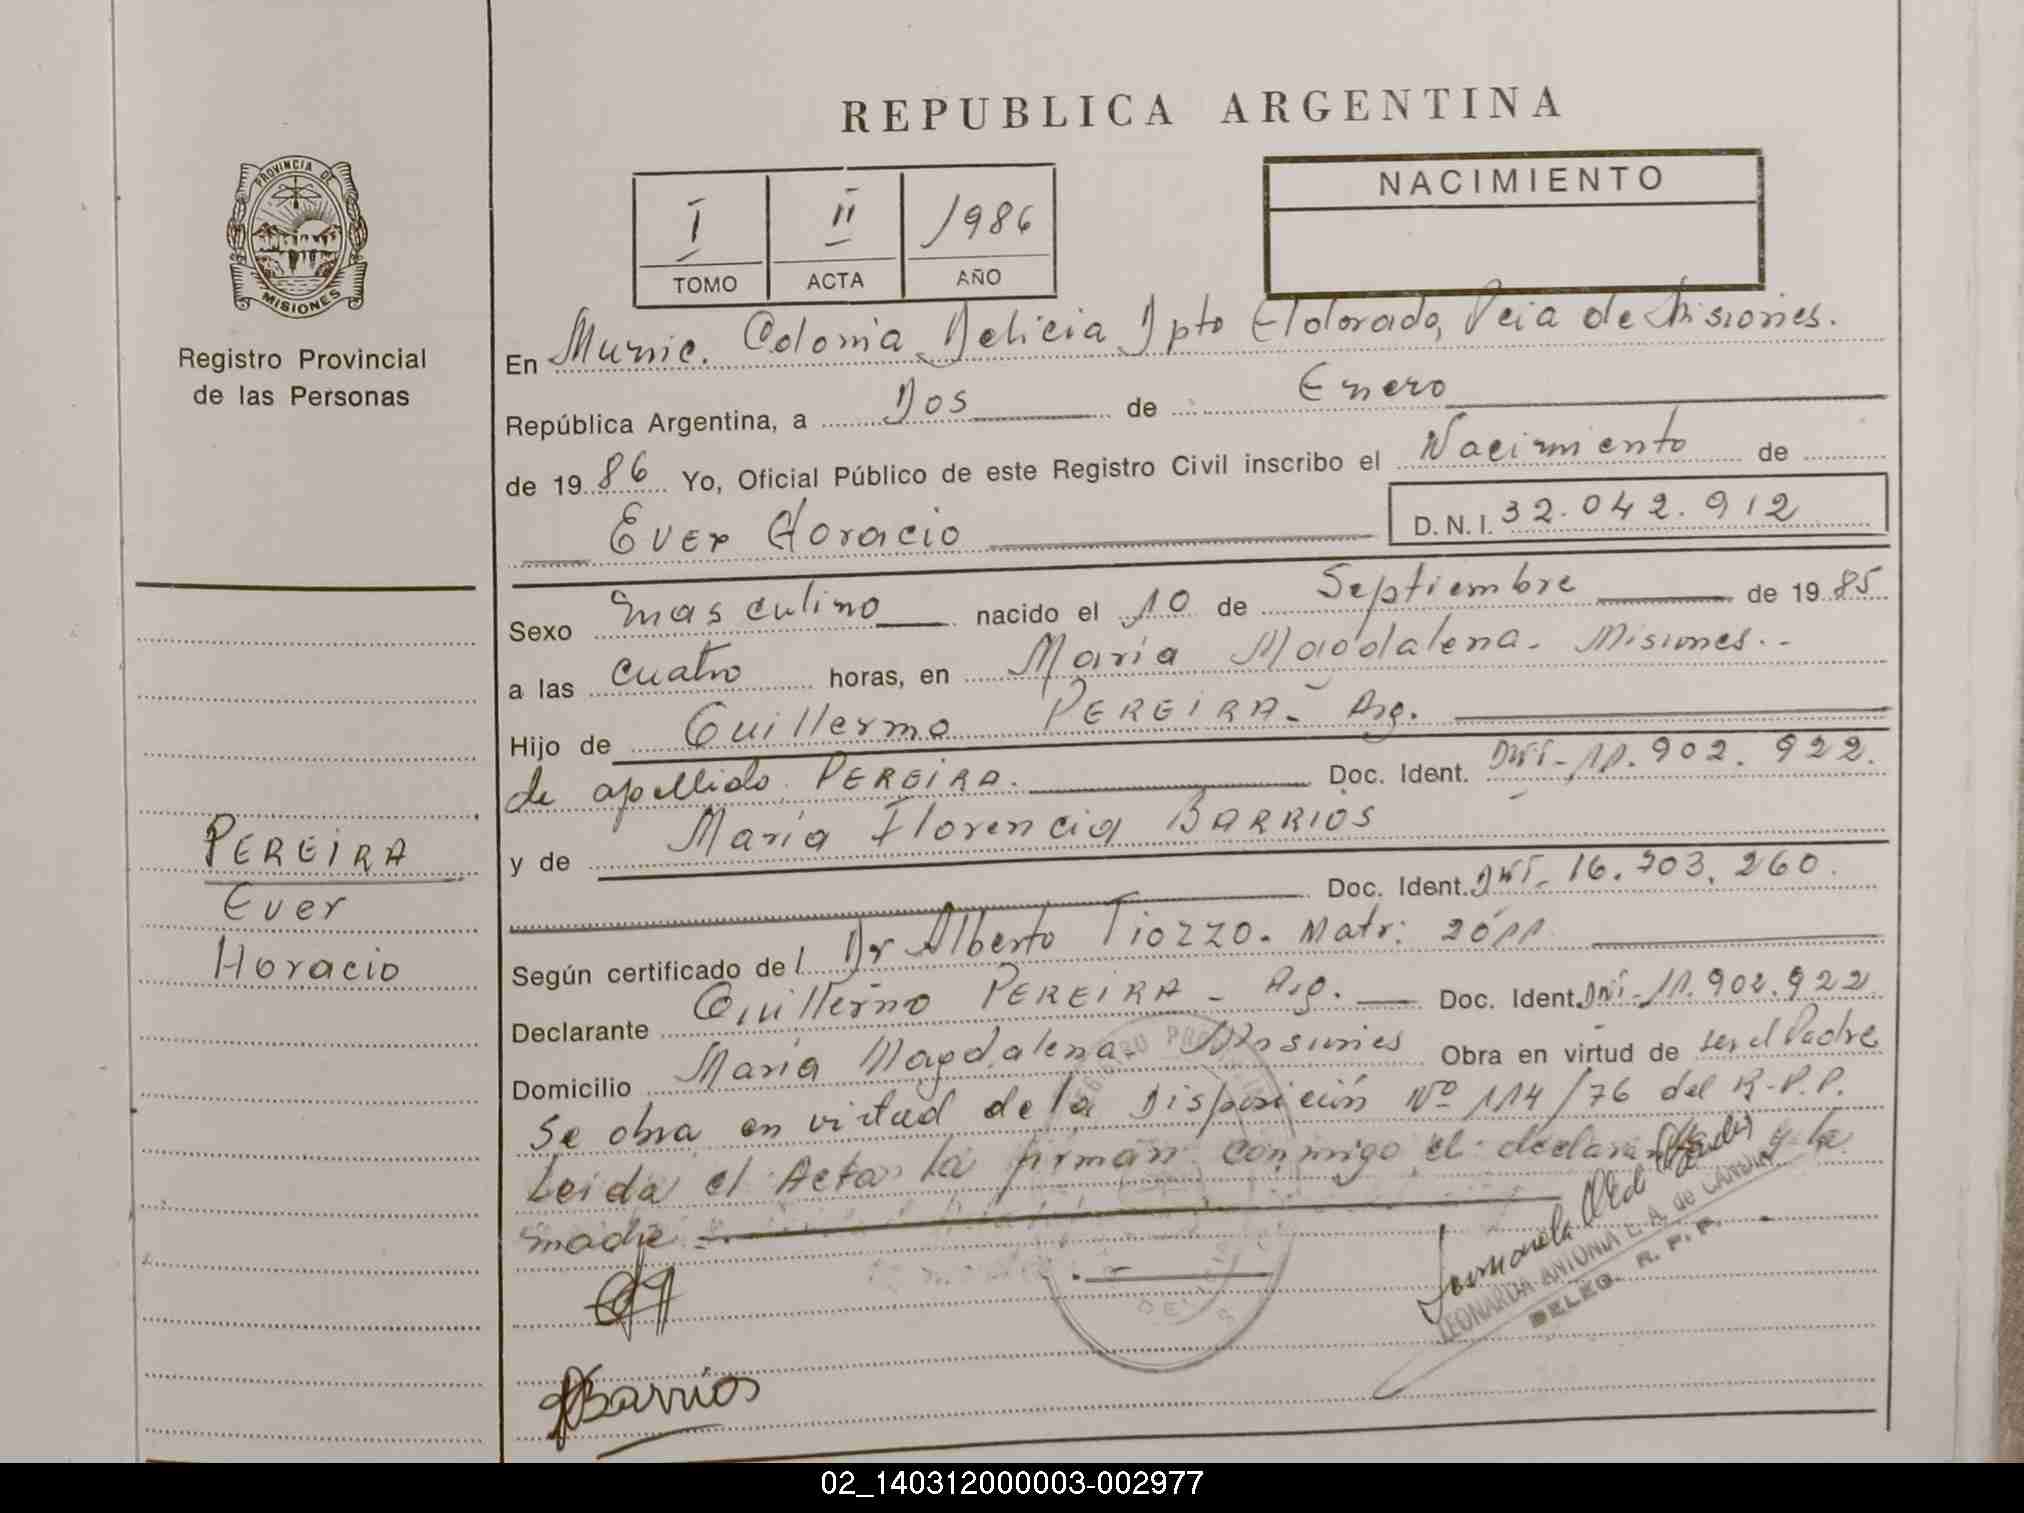 REPUBLICA ARGENTINA
PROVINCIA DE
MISIONES
Registro Provincial
de las Personas
I II 1986
TOMO ACTA AÑO
NACIMIENTO
En Munic. Colonia Delicia Dpto Eldorado, Pcia de Misiones.
República Argentina, a Dos de Enero
de 1986 Yo, Oficial Público de este Registro Civil inscribo el Nacimiento de
Ever Horacio D.N.I. 32.042.912
Sexo masculino nacido el 10 de Septiembre de 1985
a las cuatro horas, en María Magdalena - Misiones.-
Hijo de Guillermo PEREIRA - Arg.
de apellido PEREIRA. Doc. Ident. DNI-11.902.922.
y de María Florencia BARRIOS
Doc. Ident. DNI-16.703.260.
Según certificado del Dr Alberto Tiozzo. Matr: 2011
Declarante Guillermo PEREIRA - Arg. Doc. Ident. DNI-11.902.922
Domicilio María Magdalena - Misiones Obra en virtud de ser el Padre
Se obra en virtud de la Disposición Nº 114/76 del R.P.P.
Leida el Acta la firman conmigo el declarante y la
madre
PEREIRA
Ever
Horacio
Barrios
LEONARDA ANTONIA L. A. de CANDIA
DELEG. R. P. P.
02_140312000003-002977